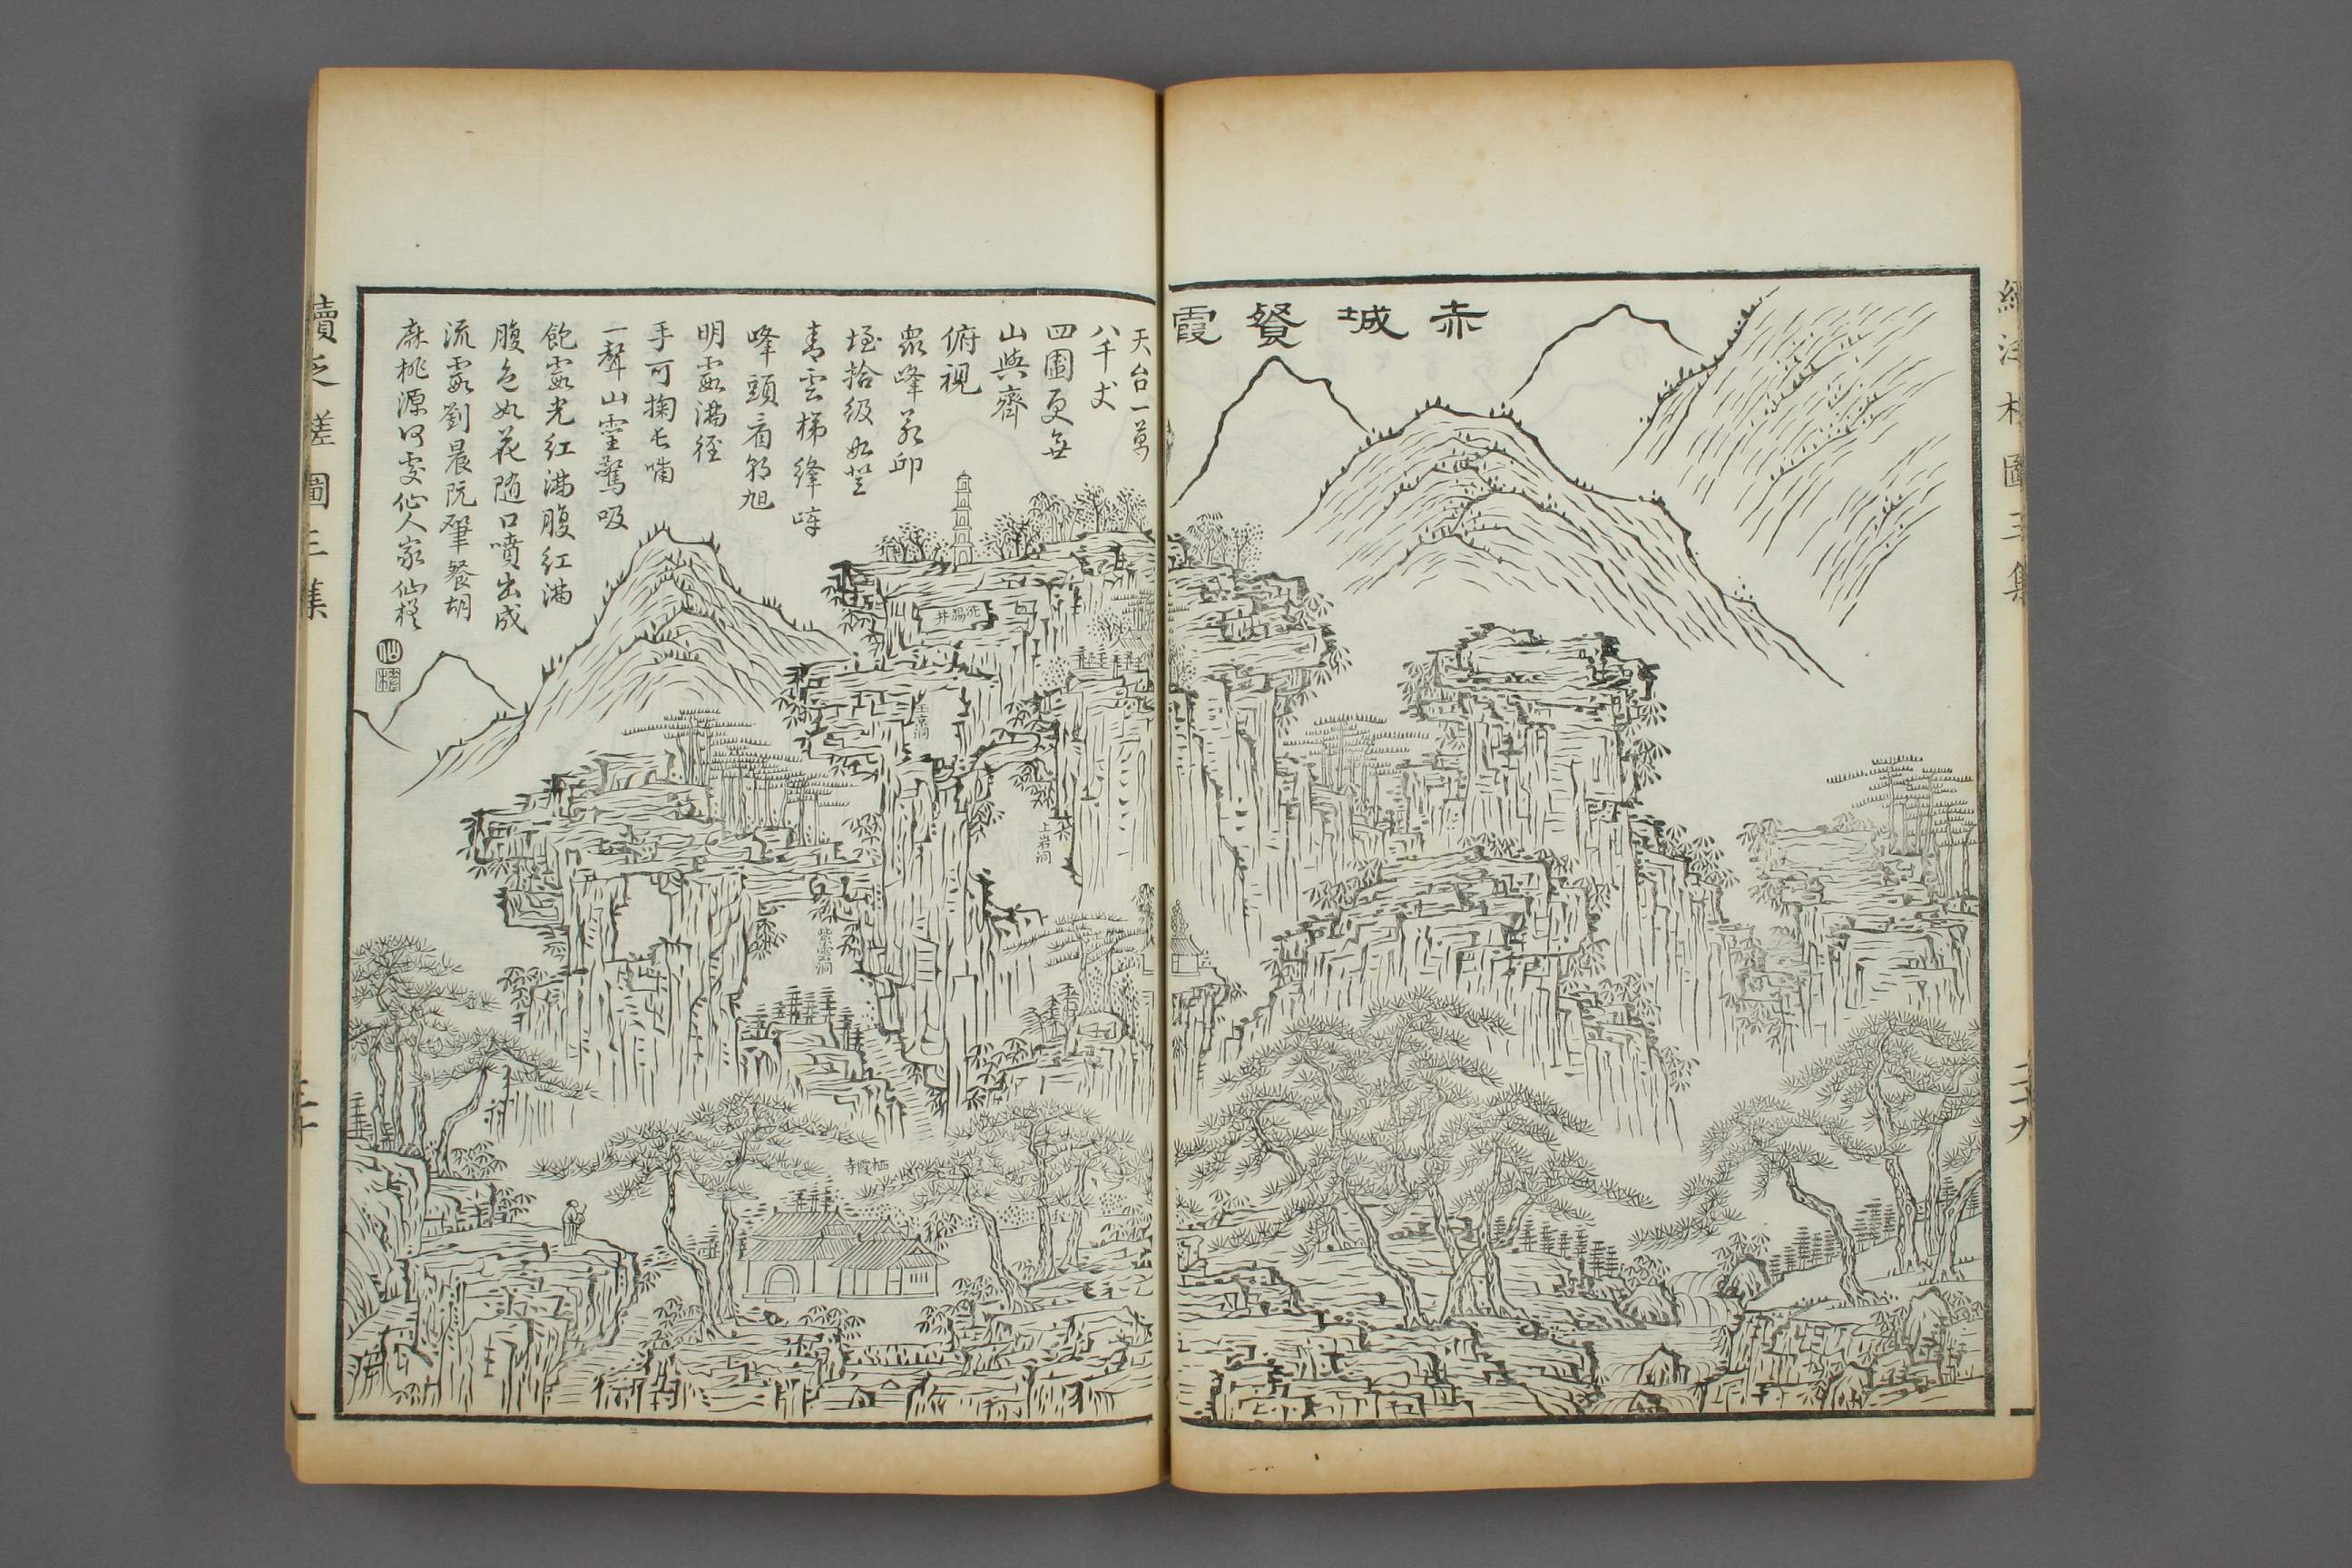 赤城餐霞
天台一萬
八千丈
四圍更無
山與齊
俯視
眾峰若邱
垤拾級如登
青雲梯絳
峰頭看初旭
明霞滿徑
手可掬長嘯
一聲山靈驚吸
飽霞光紅滿腹紅滿
腹色如花随口噴出成
流霞劉晨阮肇餐胡
麻桃源何處仙人家仙槎
洗腸井
玉京洞
上岩洞
紫雲洞
栖霞寺
續泛槎圖三集
二十九
續泛槎圖三集
三十